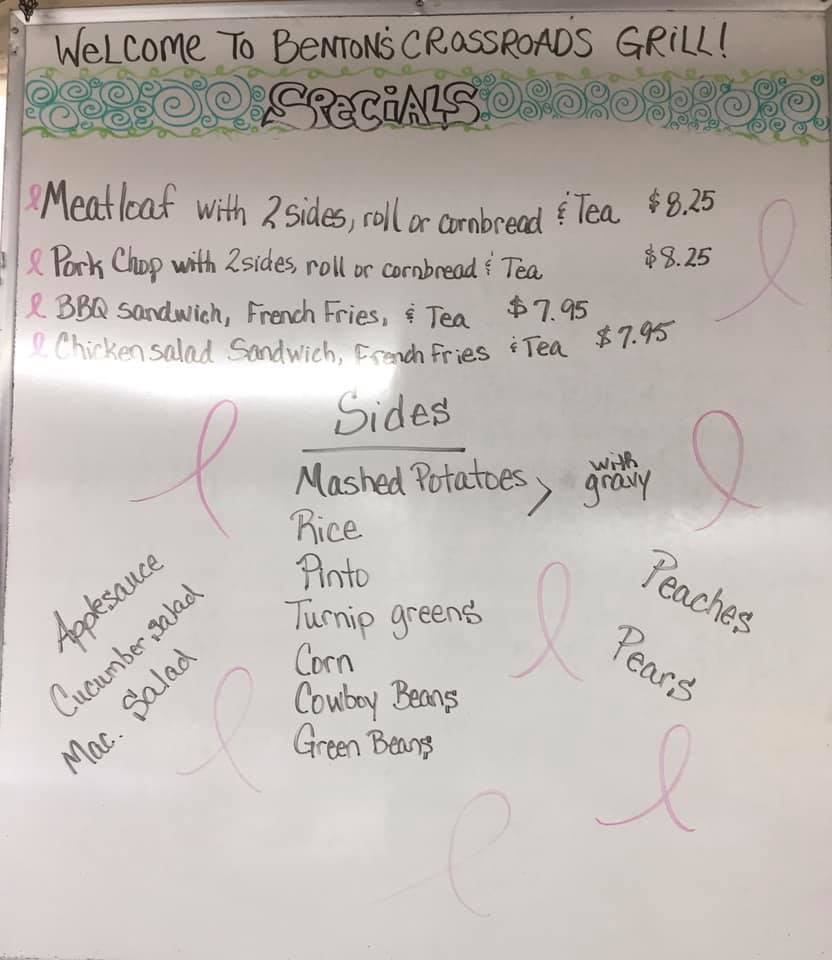 Welcome To Benton's Crossroads Grill!
Specials
Meatloaf with 2 sides, roll or cornbread & Tea $8.25
Pork Chop with 2 sides, roll or cornbread & Tea $8.25
BBQ Sandwich, French Fries, & Tea $7.95
Chicken salad Sandwich, French Fries & Tea $7.95
Sides
Mashed Potatoes > with gravy
Rice
Pinto
Turnip greens
Corn
Cowboy Beans
Green Beans
Applesauce
Cucumber salad
Mac. Salad
Peaches
Pears